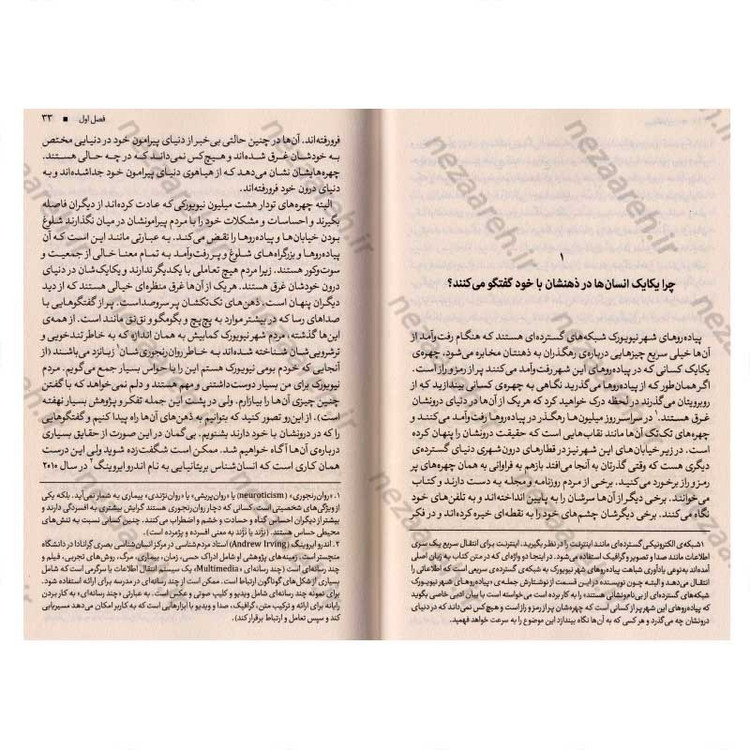 ۱
چرا یکایک انسان‌ها در ذهنشان با خود گفتگو می‌کنند؟
پیاده‌روهای شهر نیویورک شبکه‌های گسترده‌ای هستند که هنگام رفت‌وآمد از
آن‌ها خیلی سریع چیزهایی درباره‌ی رهگذران به ذهنتان مخابره می‌شود. چهره‌ی
یکایک کسانی که در پیاده‌روهای این شهر رفت‌وآمد می‌کنند پر از رمز و راز است.
اگر همان‌طور که از پیاده‌روها می‌گذرید نگاهی به چهره‌ی کسانی بیندازید که از
روبرویتان می‌گذرند در لحظه درک خواهید کرد که هر یک از آن‌ها در دنیای درونشان
غرق هستند.۱ در سراسر روز میلیون‌ها رهگذر در پیاده‌روها رفت‌وآمد می‌کنند و
چهره‌های تک‌تک آن‌ها مانند نقاب‌هایی است که حقیقت درونشان را پنهان کرده
است. در زیر خیابان‌های این شهر نیز در قطارهای درون‌شهری دنیای گسترده‌ی
دیگری هست که وقتی گذرتان به آنجا می‌افتد بازهم به فراوانی به همان چهره‌های پر
رمز و راز برمی‌خورید. برخی از مردم روزنامه و مجله به دست دارند و کتاب
می‌خوانند. برخی دیگر از آن‌ها سرشان را به پایین انداخته‌اند و به تلفن‌های خود
نگاه می‌کنند. برخی دیگرشان چشم‌های خود را به نقطه‌ای خیره کرده‌اند و در فکر
۱شبکه‌ی الکترونیکی گسترده‌ای مانند اینترنت را در نظر بگیرید. اینترنت برای انتقال سریع یک سری
اطلاعات مانند صدا و تصویر و گرافیک استفاده می‌شود. در اینجا دو واژه‌ای که در متن کتاب به زبان اصلی
آمده‌اند به‌نوعی یادآوری شباهت پیاده‌روهای شهر نیویورک به شبکه‌ی گسترده‌ی سریعی است که اطلاعاتی را
انتقال می‌دهد و البته چون نویسنده در این قسمت از نوشتارش جمله‌ی «پیاده‌روهای شهر نیویورک
شبکه‌های گسترده‌ای از بی‌نام‌ونشانی هستند» را به کار برده است می‌خواسته است با بیان ادبی خاصی بگوید
که پیاده‌روهای این شهر پر از کسانی است که چهره‌شان پر از رمز و راز است و هیچ‌کس نمی‌داند که در دنیای
درونشان چه می‌گذرد و هر کسی که به آن‌ها نگاه بیندازد این موضوع را به سرعت خواهد فهمید.
فصل اول ■ ۳۳
فرورفته‌اند. آن‌ها در چنین حالتی بی‌خبر از دنیای پیرامون خود در دنیایی مختص
به خودشان غرق شده‌اند و هیچ‌کس نمی‌داند که در چه حالی هستند.
چهره‌هایشان نشان می‌دهد که از هیاهوی دنیای پیرامون خود جداشده‌اند و به
دنیای درون خود فرورفته‌اند.
البته چهره‌های تودار هشت میلیون نیویورکی که عادت کرده‌اند از دیگران فاصله
بگیرند و احساسات و مشکلات خود را با مردم پیرامونشان در میان نگذارند شلوغ
بودن خیابان‌ها و پیاده‌روها را نقض می‌کند. به عبارتی مانند این است که آن
پیاده‌روها و بزرگراه‌های شلوغ و پر رفت‌وآمد به تمام معنا خالی از جمعیت و
سوت‌وکور هستند. زیرا مردم هیچ تعاملی با یکدیگر ندارند و یکایک‌شان در دنیای
درون خودشان غرق هستند. هر یک از آن‌ها غرق منظره‌ای خیالی هستند که از دید
دیگران پنهان است، ذهن‌های تک‌تکشان پر سروصداست. پر از گفتگوهایی با
صداهای رسا که در بیشتر موارد به پچ‌پچ و بگومگو و نق‌نق مانند است. از
این‌ها گذشته، مردم شهر نیویورک کمابیش به همان اندازه که به خاطر تندخویی و
ترشرویی‌شان شناخته شده‌اند به خاطر روان‌رنجوری شان۱ زبانزد می‌باشند (از
آنجایی که خودم بومی نیویورک هستم این را با حواس بسیار جمع می‌گویم.
نیویورک برای من بسیار دوست داشتنی و مهم هستند و دلم نمی‌خواهد که با گفتن
چنین چیزی آن‌ها را بیازارم. ولی در پشت این جمله تفکر و پژوهش بسیار نهفته
است). از این‌رو تصور کنید که بتوانیم به ذهن‌های آن‌ها راه پیدا کنیم و گفتگوهایی
را که در درونشان با خود دارند بشنویم. بی‌گمان در این صورت از حقایق بسیاری
درباره‌ی آن‌ها آگاه خواهیم شد. ممکن است شگفت‌زده شوید ولی این درست
همان کاری است که انسان‌شناس بریتانیایی به نام اندرو ایروینگ۲ در سال ۲۰۱۰
۱. «روان‌رنجوری» (neuroticism) یا «روان‌پریشی» یا «روان‌نژندی»، بیماری به شمار نمی‌آید. بلکه یکی
از ویژگی‌های شخصیتی است. کسانی که دچار روان‌رنجوری هستند گرایش بیشتری به افسردگی دارند و
بیشتر از دیگران احساس گناه و حسادت و خشم و اضطراب می‌کنند. چنین کسانی نسبت به تنش‌های
محیطی حساس هستند. (نژند یا نَژند به معنی افسرده و پژمرده است).
۲. اندرو ایروینگ (Andrew Irving) استاد مردم‌شناسی در مرکز انسان‌شناسی بصری گرانادا در دانشگاه
منچستر است. زمینه‌های پژوهشی او شامل ادراک حسی، زمان، بیماری، مرگ، روش‌های تجربی، فیلم و
چند رسانه‌ای است (چند رسانه‌ای «Multimedia»، یک سیستم انتقال اطلاعات یا سرگرمی است که شامل
بسیاری از شکل‌های گوناگون ارتباط است. ممکن است از چند رسانه‌ای در مدرسه برای ارائه استفاده شود.
برای نمونه چند رسانه‌ای شامل ویدیو و کلیپ صوتی و عکس است. به عبارتی «چند رسانه‌ای» به کار بردن
رایانه برای ارائه و ترکیب متن، گرافیک، صدا و ویدیو با ابزارهایی است که به کاربر امکان می‌دهد مسیریابی
کند و سپس تعامل و ارتباط برقرار کند).
nezaareh.ir